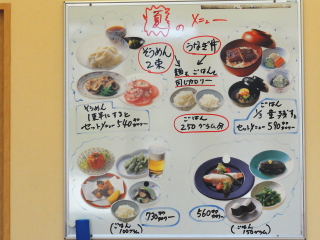 夏のメニュー
そうめん
2束
うなぎ丼
麺とごはんで
同じカロリー
ごはん
250グラム分
そうめん
1束半にすると
セットメニュー540キロカロリー
ごはん
1/3量はずす。
セットメニュー590キロカロリー
730キロカロリー
(ごはん
100グラム)
560キロカロリー
(ごはん
150グラム)